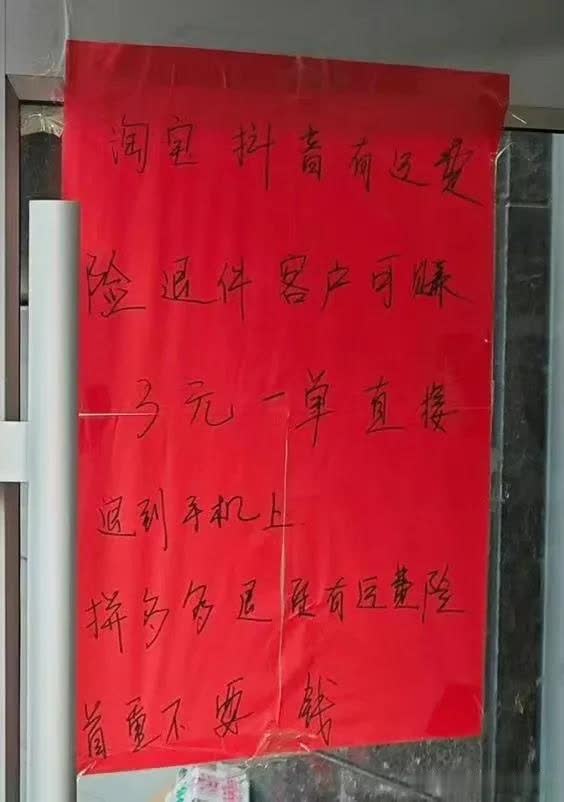 淘宝 抖音有运费
险退件 客户可赚
3元一单 直接
退到手机上
拼多多退 有运费险
首重不要钱